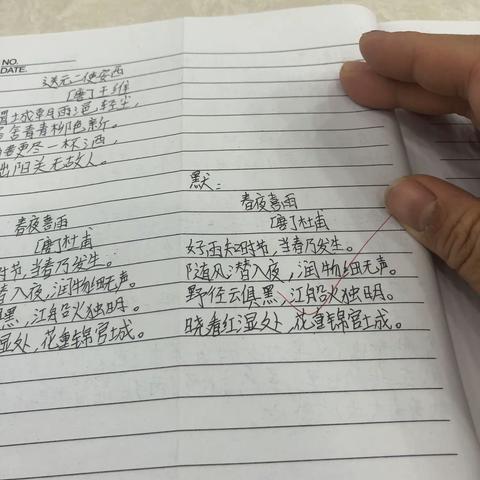 NO.
DATE.
送元二使安西
[唐]王维
城朝雨浥轻尘,
舍青青柳色新。
更尽一杯酒,
出阳关无故人。
春夜喜雨
[唐]杜甫
时节,当春乃发生。
潜入夜,润物细无声。
俱黑,江船火独明。
湿处,花重锦官城。
默:
春夜喜雨
[唐]杜甫
好雨知时节,当春乃发生。
随风潜入夜,润物细无声。
野径云俱黑,江船火独明。
晓看红湿处,花重锦官城。